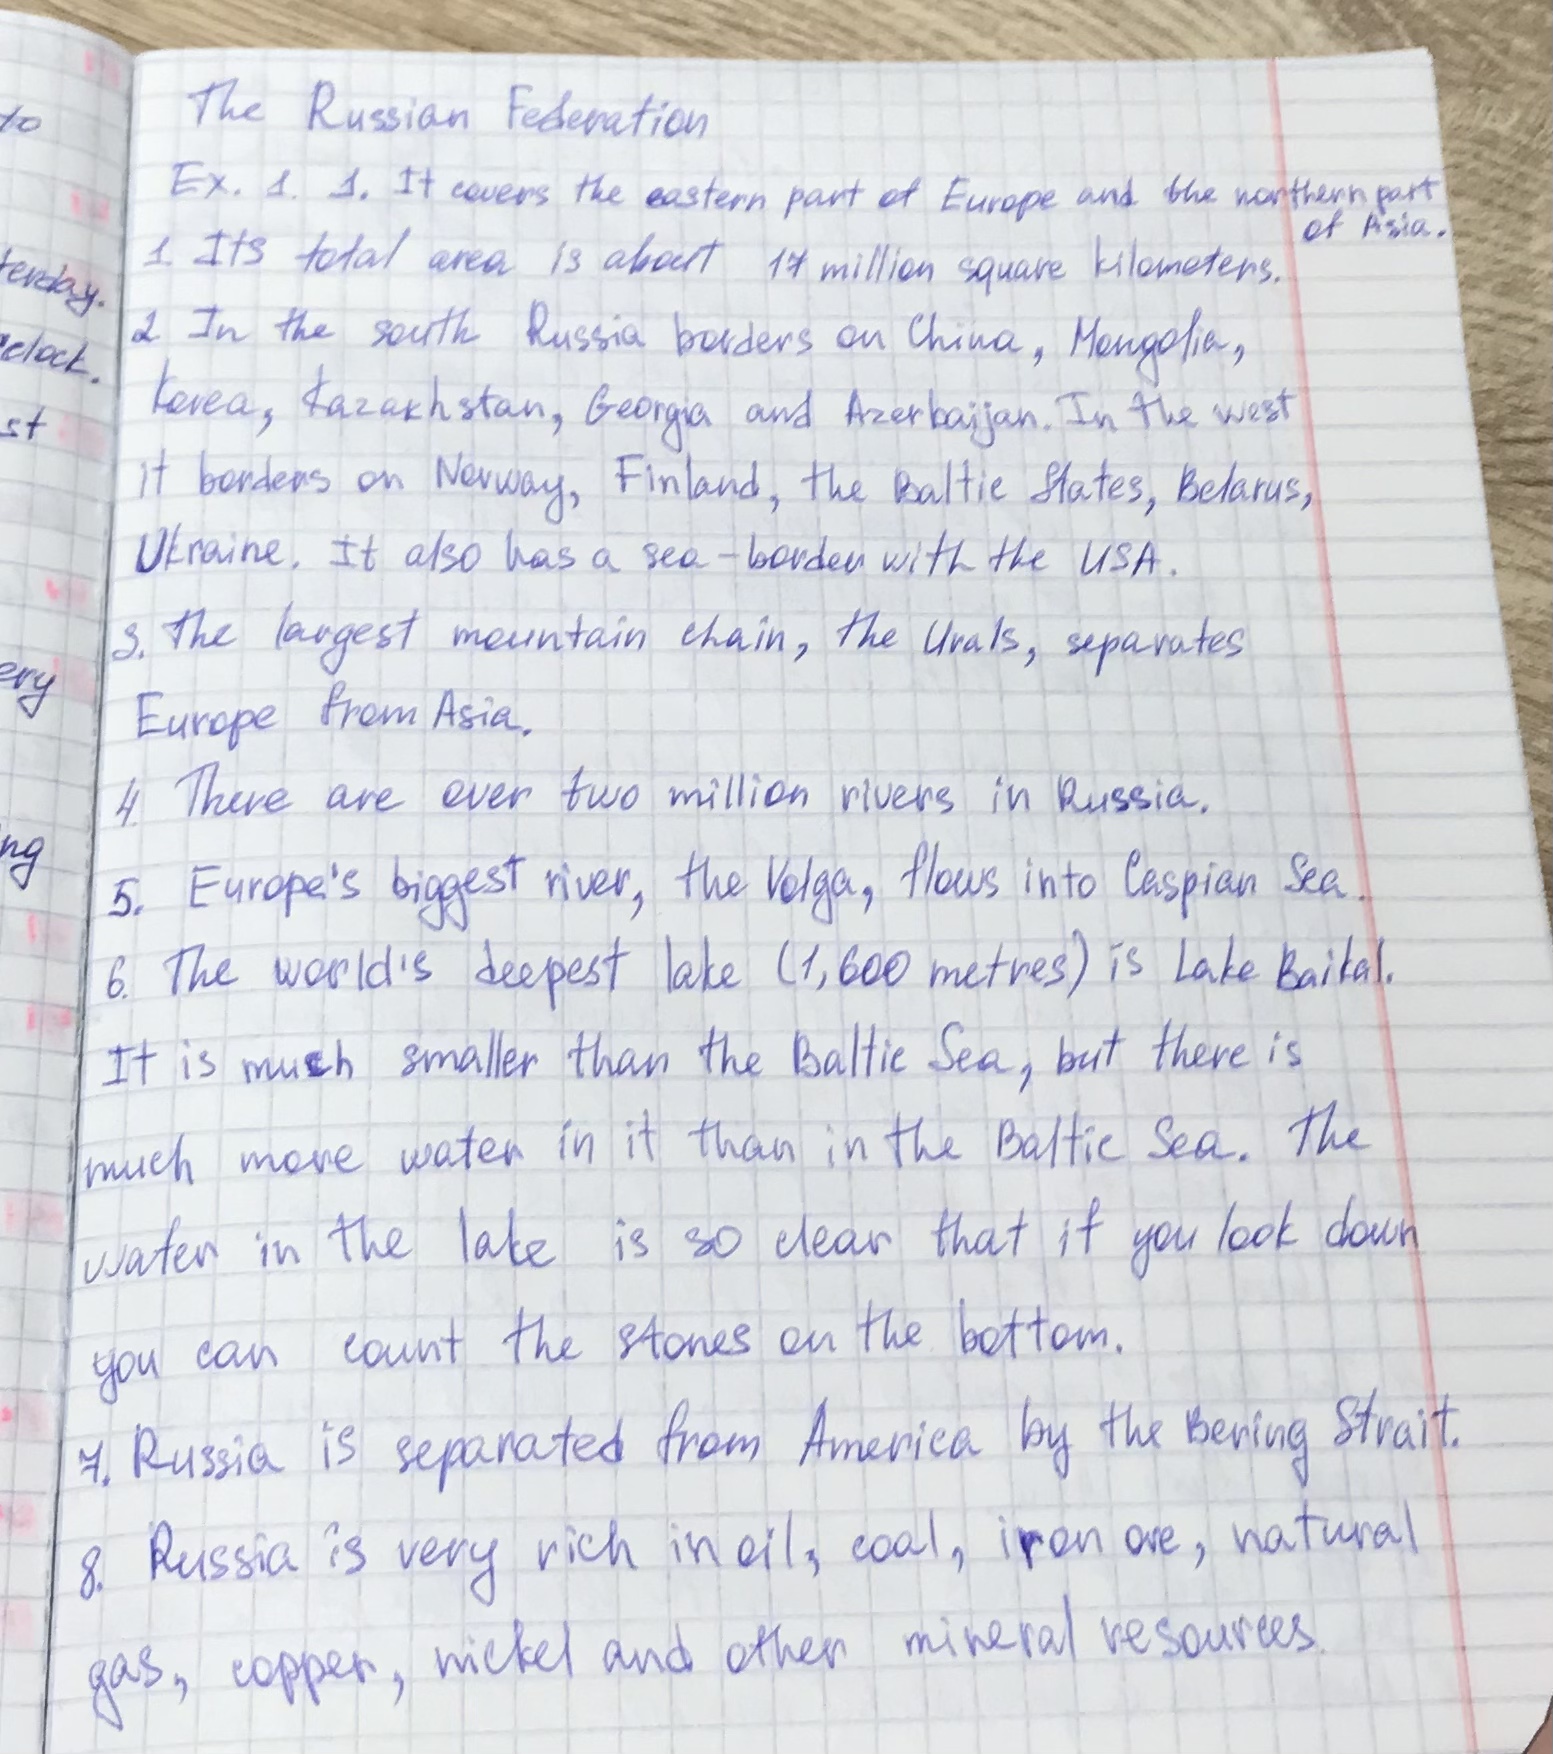 The Russian Federation
Ex. 1. 1. It covers the eastern part of Europe and the northern part
of Asia.
1. Its total area is about 17 million square kilometers.
2 In the south Russia borders on China, Mongolia,
Korea, Kazakhstan, Georgia and Azerbaijan. In the west
it borders on Norway, Finland, the Baltic States, Belarus,
Ukraine. It also has a sea-border with the USA.
3. The largest mountain chain, the Urals, separates
Europe from Asia.
4. There are over two million rivers in Russia.
5. Europe's biggest river, the Volga, flows into Caspian Sea.
6. The world's deepest lake (1,600 metres) is Lake Baikal.
It is much smaller than the Baltic Sea, but there is
much more water in it than in the Baltic Sea. The
water in the lake is so clear that if you look down
you can count the stones on the bottom.
7. Russia is separated from America by the Bering Strait.
8. Russia is very rich in oil, coal, iron ore, natural
gas, copper, nickel and other mineral resources.